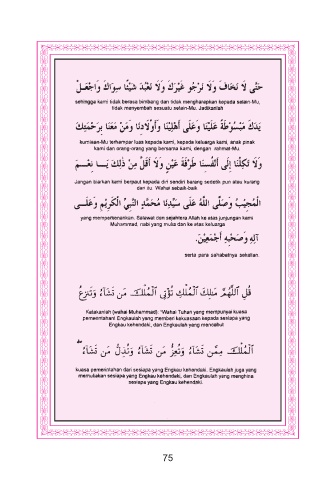 حَتَّى لَا نَخَافَ وَلَا نَرْجُوَ غَيْرَكَ وَلَا نَعْبُدَ شَيْئًا سِوَاكَ وَاجْعَلْ
sehingga kami tidak berasa bimbang dan tidak mengharapkan kepada selain-Mu,
tidak menyembah sesuatu selain-Mu. Jadikanlah
يَدَكَ مَبْسُوطَةً عَلَيْنَا وَعَلَى أَهْلِيْنَا وَأَوْلَادِنَا وَمَنْ مَعَنَا بِرَحْمَتِكَ
kurniaan-Mu terhampar luas kepada kami, kepada keluarga kami, anak pinak
kami dan orang-orang yang bersama kami, dengan rahmat-Mu
وَلَا تَكِلْنَا إِلَى أَنْفُسِنَا طَرْفَةَ عَيْنٍ وَلَا أَقَلَّ مِنْ ذَلِكَ يَـا نِعْـمَ
Jangan biarkan kami berpaut kepada diri sendiri barang sedetik pun atau kurang
dari itu. Wahai sebaik-baik
الْمُجِيْبُ وَصَلَّى اللهُ عَلَى سَيِّدِنَا مُحَمَّدٍ النَّبِيِّ الْكَرِيْمِ وَعَلَـى
yang memperkenankan. Salawat dan sejahtera Allah ke atas junjungan kami
Muhammad, nabi yang mulia dan ke atas keluarga
آلِهِ وَصَحْبِهِ أَجْمَعِيْنَ.
serta para sahabatnya sekalian.
قُلِ ٱللَّهُمَّ مَـٰلِكَ ٱلْمُلْكِ تُؤْتِى ٱلْمُلْكَ مَن تَشَآءُ وَتَنزِعُ
Katakanlah (wahai Muhammad): "Wahai Tuhan yang mempunyai kuasa
pemerintahan! Engkaulah yang memberi kekuasaan kepada sesiapa yang
Engkau kehendaki, dan Engkaulah yang mencabut
ٱلْمُلْكَ مِمَّن تَشَآءُ وَتُعِزُّ مَن تَشَآءُ وَتُذِلُّ مَن تَشَآءُ ۖ
kuasa pemerintahan dari sesiapa yang Engkau kehendaki. Engkaulah juga yang
memuliakan sesiapa yang Engkau kehendaki, dan Engkaulah yang menghina
sesiapa yang Engkau kehendaki.
75